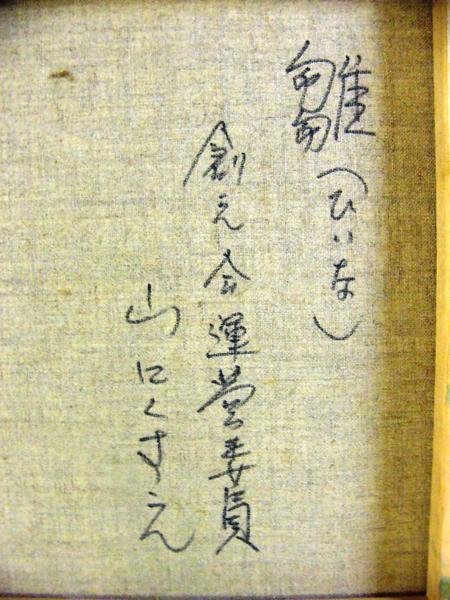 雛（ひいな）
創元会運営委員
山にくすえ